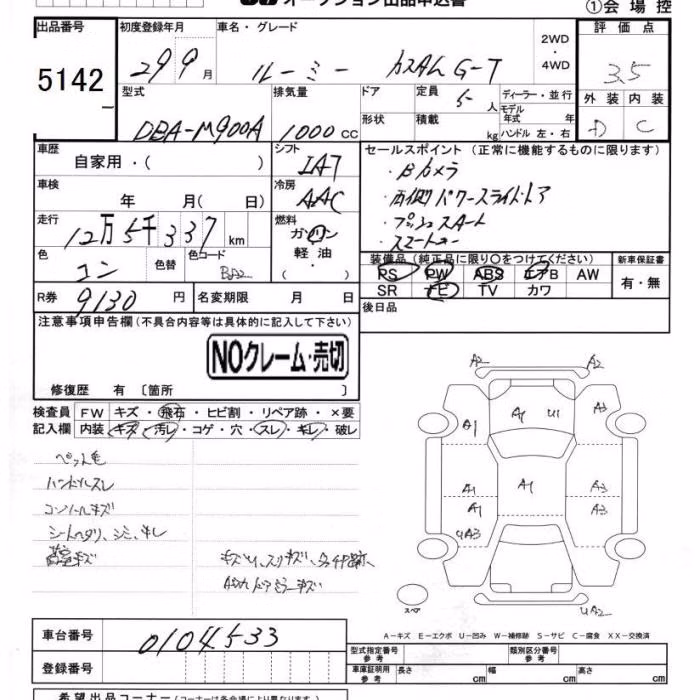 オークション出品申込書
①会場控
出品番号 5142
初度登録年月 29 9月
車名・グレード ルーミー カスタム G-T
2WD・4WD
評価点 3.5
外装 D 内装 C
型式 DBA-M900A
排気量 1000 CC
ドア 形状
定員 5人 積載 kg
ディーラー・並行
モデル年式 年
ハンドル 左・右
車歴 自家用・( )
シフト IAT
セールスポイント (正常に機能するものに限ります)
・Bカメラ
・両側パワースライドドア
・プッシュスタート
・スマートキー
車検 年 月( 日)
冷房 AAC
走行 12万5千337 km
燃料 ガソリン 軽油・( )
色 コン 色替 色コード
装備品 (純正品に限り〇をつけてください)
PS PW ABS エアB AW
SR ナビ TV カワ
新車保証書 有・無
R券 9130円
名変期限 月 日
後日品
注意事項申告欄(不具合内容等は具体的に記入して下さい)
NOクレーム・売切
修復歴 有〔箇所 〕
検査員記入欄
FW キズ・飛石・ヒビ割・リペア跡・×要
内装 キズ・汚レ・コゲ・穴・スレ・キレ・破レ
ペット毛
ハンドルスレ
コンソールキズ
シートヘタリ、シミ、キレ
荷室キズ
A2 A2
A1 U1 A3
A1
A1 A1 A3
A1 A3
UA3
スペア
UA2
A−キズ E−エクボ U−凹み W−補修跡 S−サビ C−腐食 XX−交換済
車台番号 0104533
登録番号
型式指定番号 参考
類別区分番号 参考
車庫証明用 参考 長さ cm 幅 cm 高さ cm
希望出品コーナー